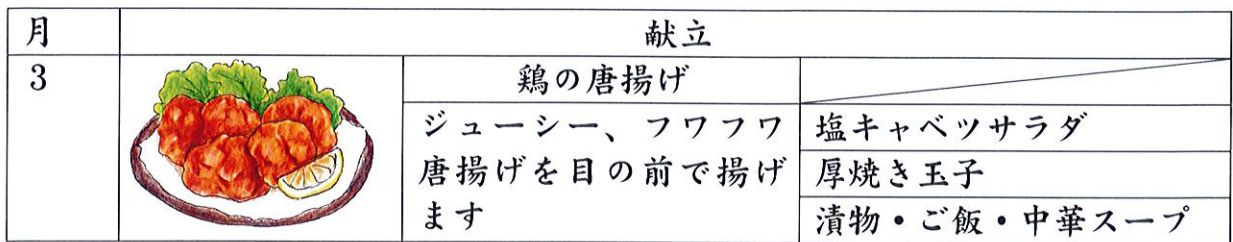 月
献立
3
鶏の唐揚げ
ジューシー、フワフワ
唐揚げを目の前で揚げ
ます
塩キャベツサラダ
厚焼き玉子
漬物・ご飯・中華スープ